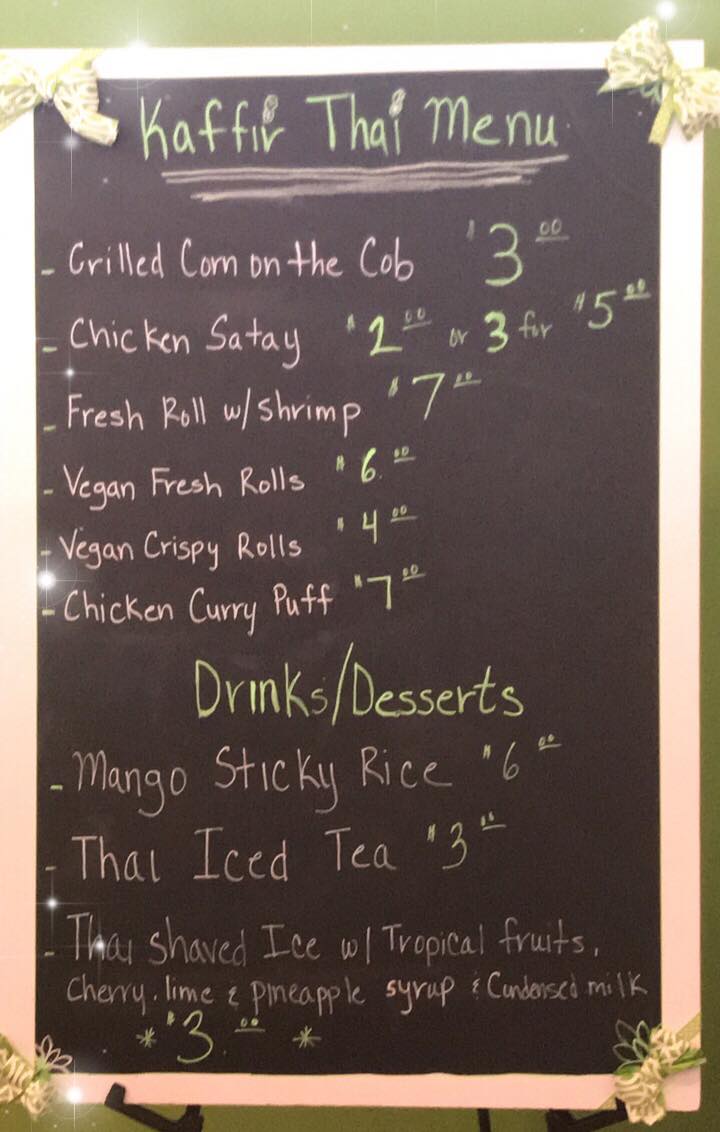 Kaffir Thai Menu
- Grilled Corn on the Cob $3.00
- Chicken Satay $2.00 or 3 for $5.00
- Fresh Roll w/shrimp $7.00
- Vegan Fresh Rolls $6.00
- Vegan Crispy Rolls $4.00
- Chicken Curry Puff $7.00
Drinks/Desserts
- Mango Sticky Rice $6.00
- Thai Iced Tea $3.00
- Thai shaved Ice w/ Tropical fruits,
cherry, lime & pineapple syrup & Condensed milk
* $3.00 *